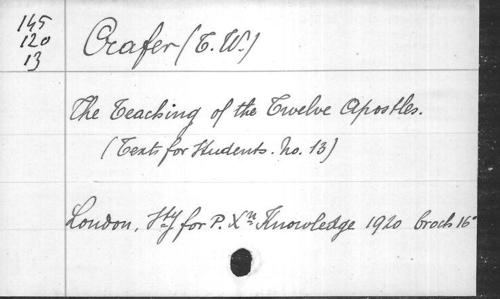 145
120
13
Crafer (T. W.)
The Teaching of the Twelve Apostles.
(Texts for Students. No. 13)
London, Sty for P. Xn Knowledge 1920 broch 16°